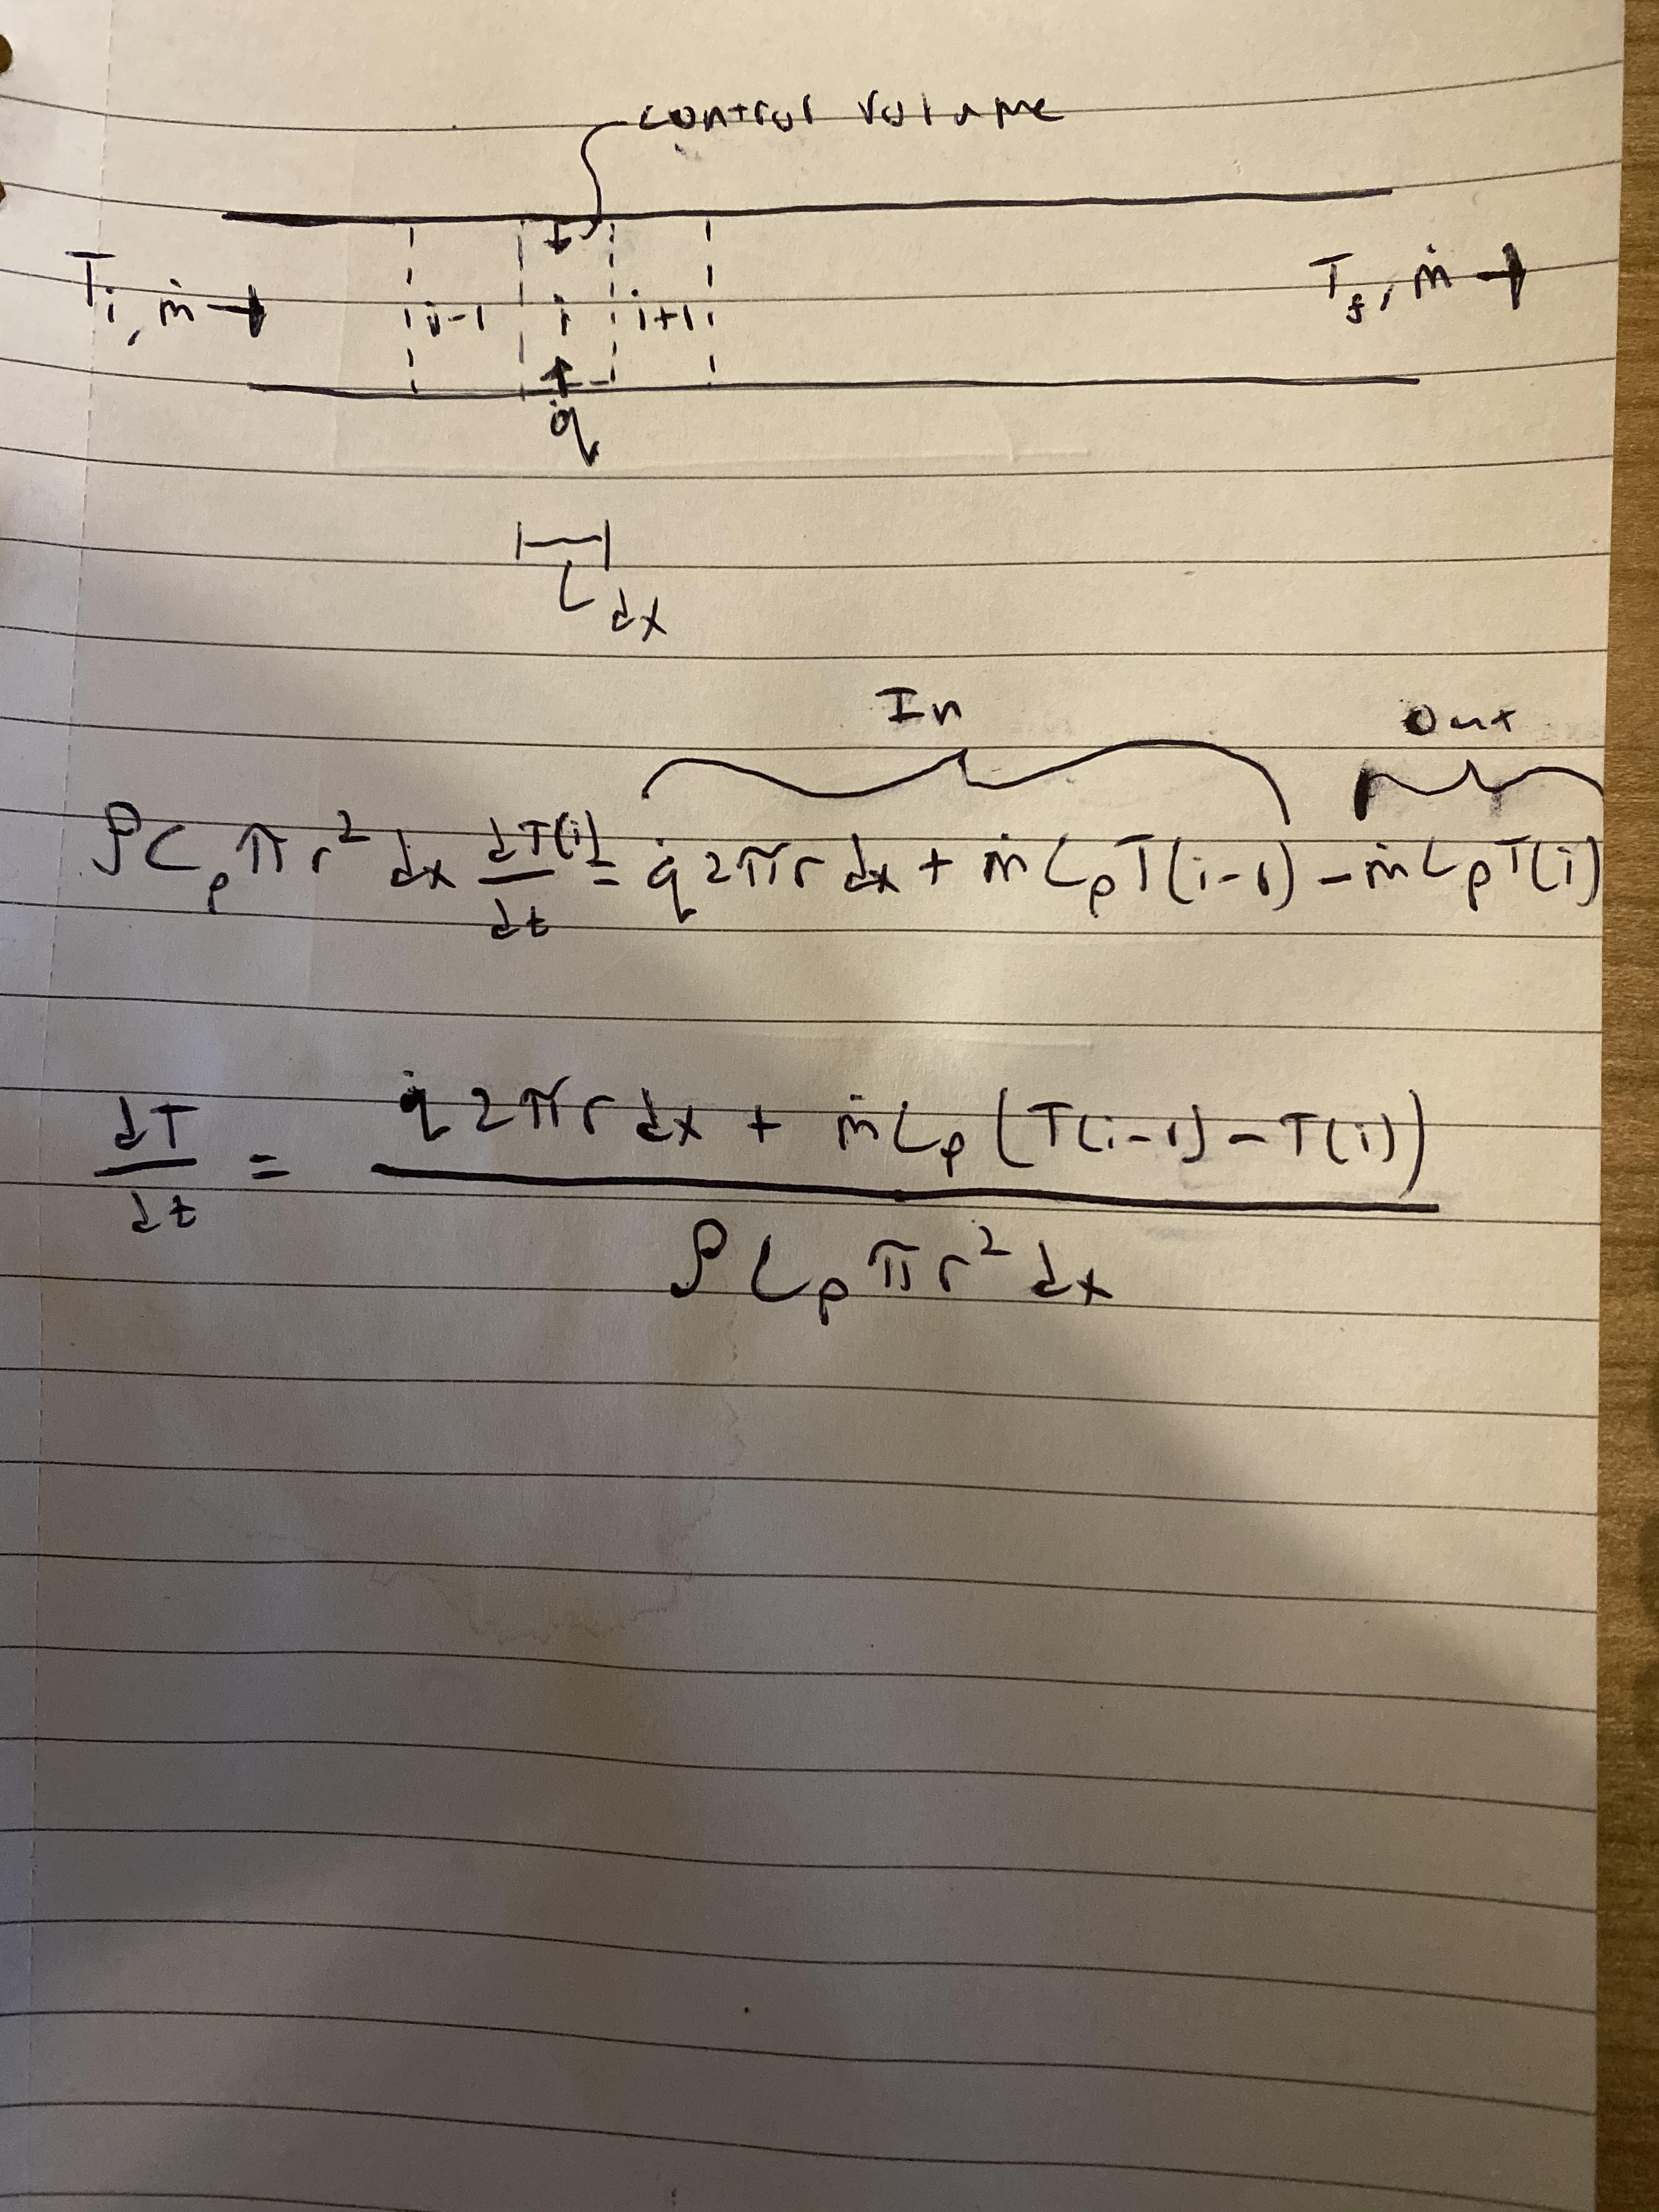 control volume
Ti, ṁ → i-1 i i+1 Tf, ṁ →
q̇
dx
In Out
ρCpπr² dx dT(i)/dt = q̇ 2πr dx + ṁCpT(i-1) - ṁCpT(i)
dT/dt = (q̇ 2πr dx + ṁCp(T(i-1) - T(i))) / (ρCpπr² dx)